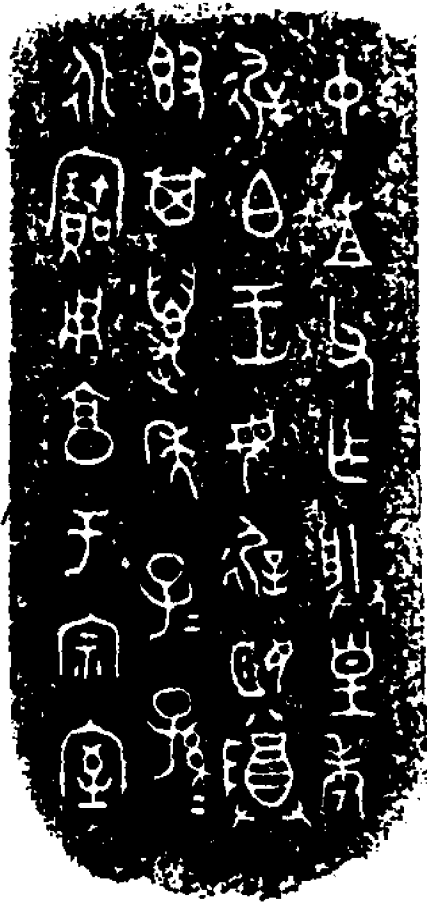 中父乍朕皇考
遟白王母遟姬尊
簋其萬年子=孫=
永寶用享于宗室